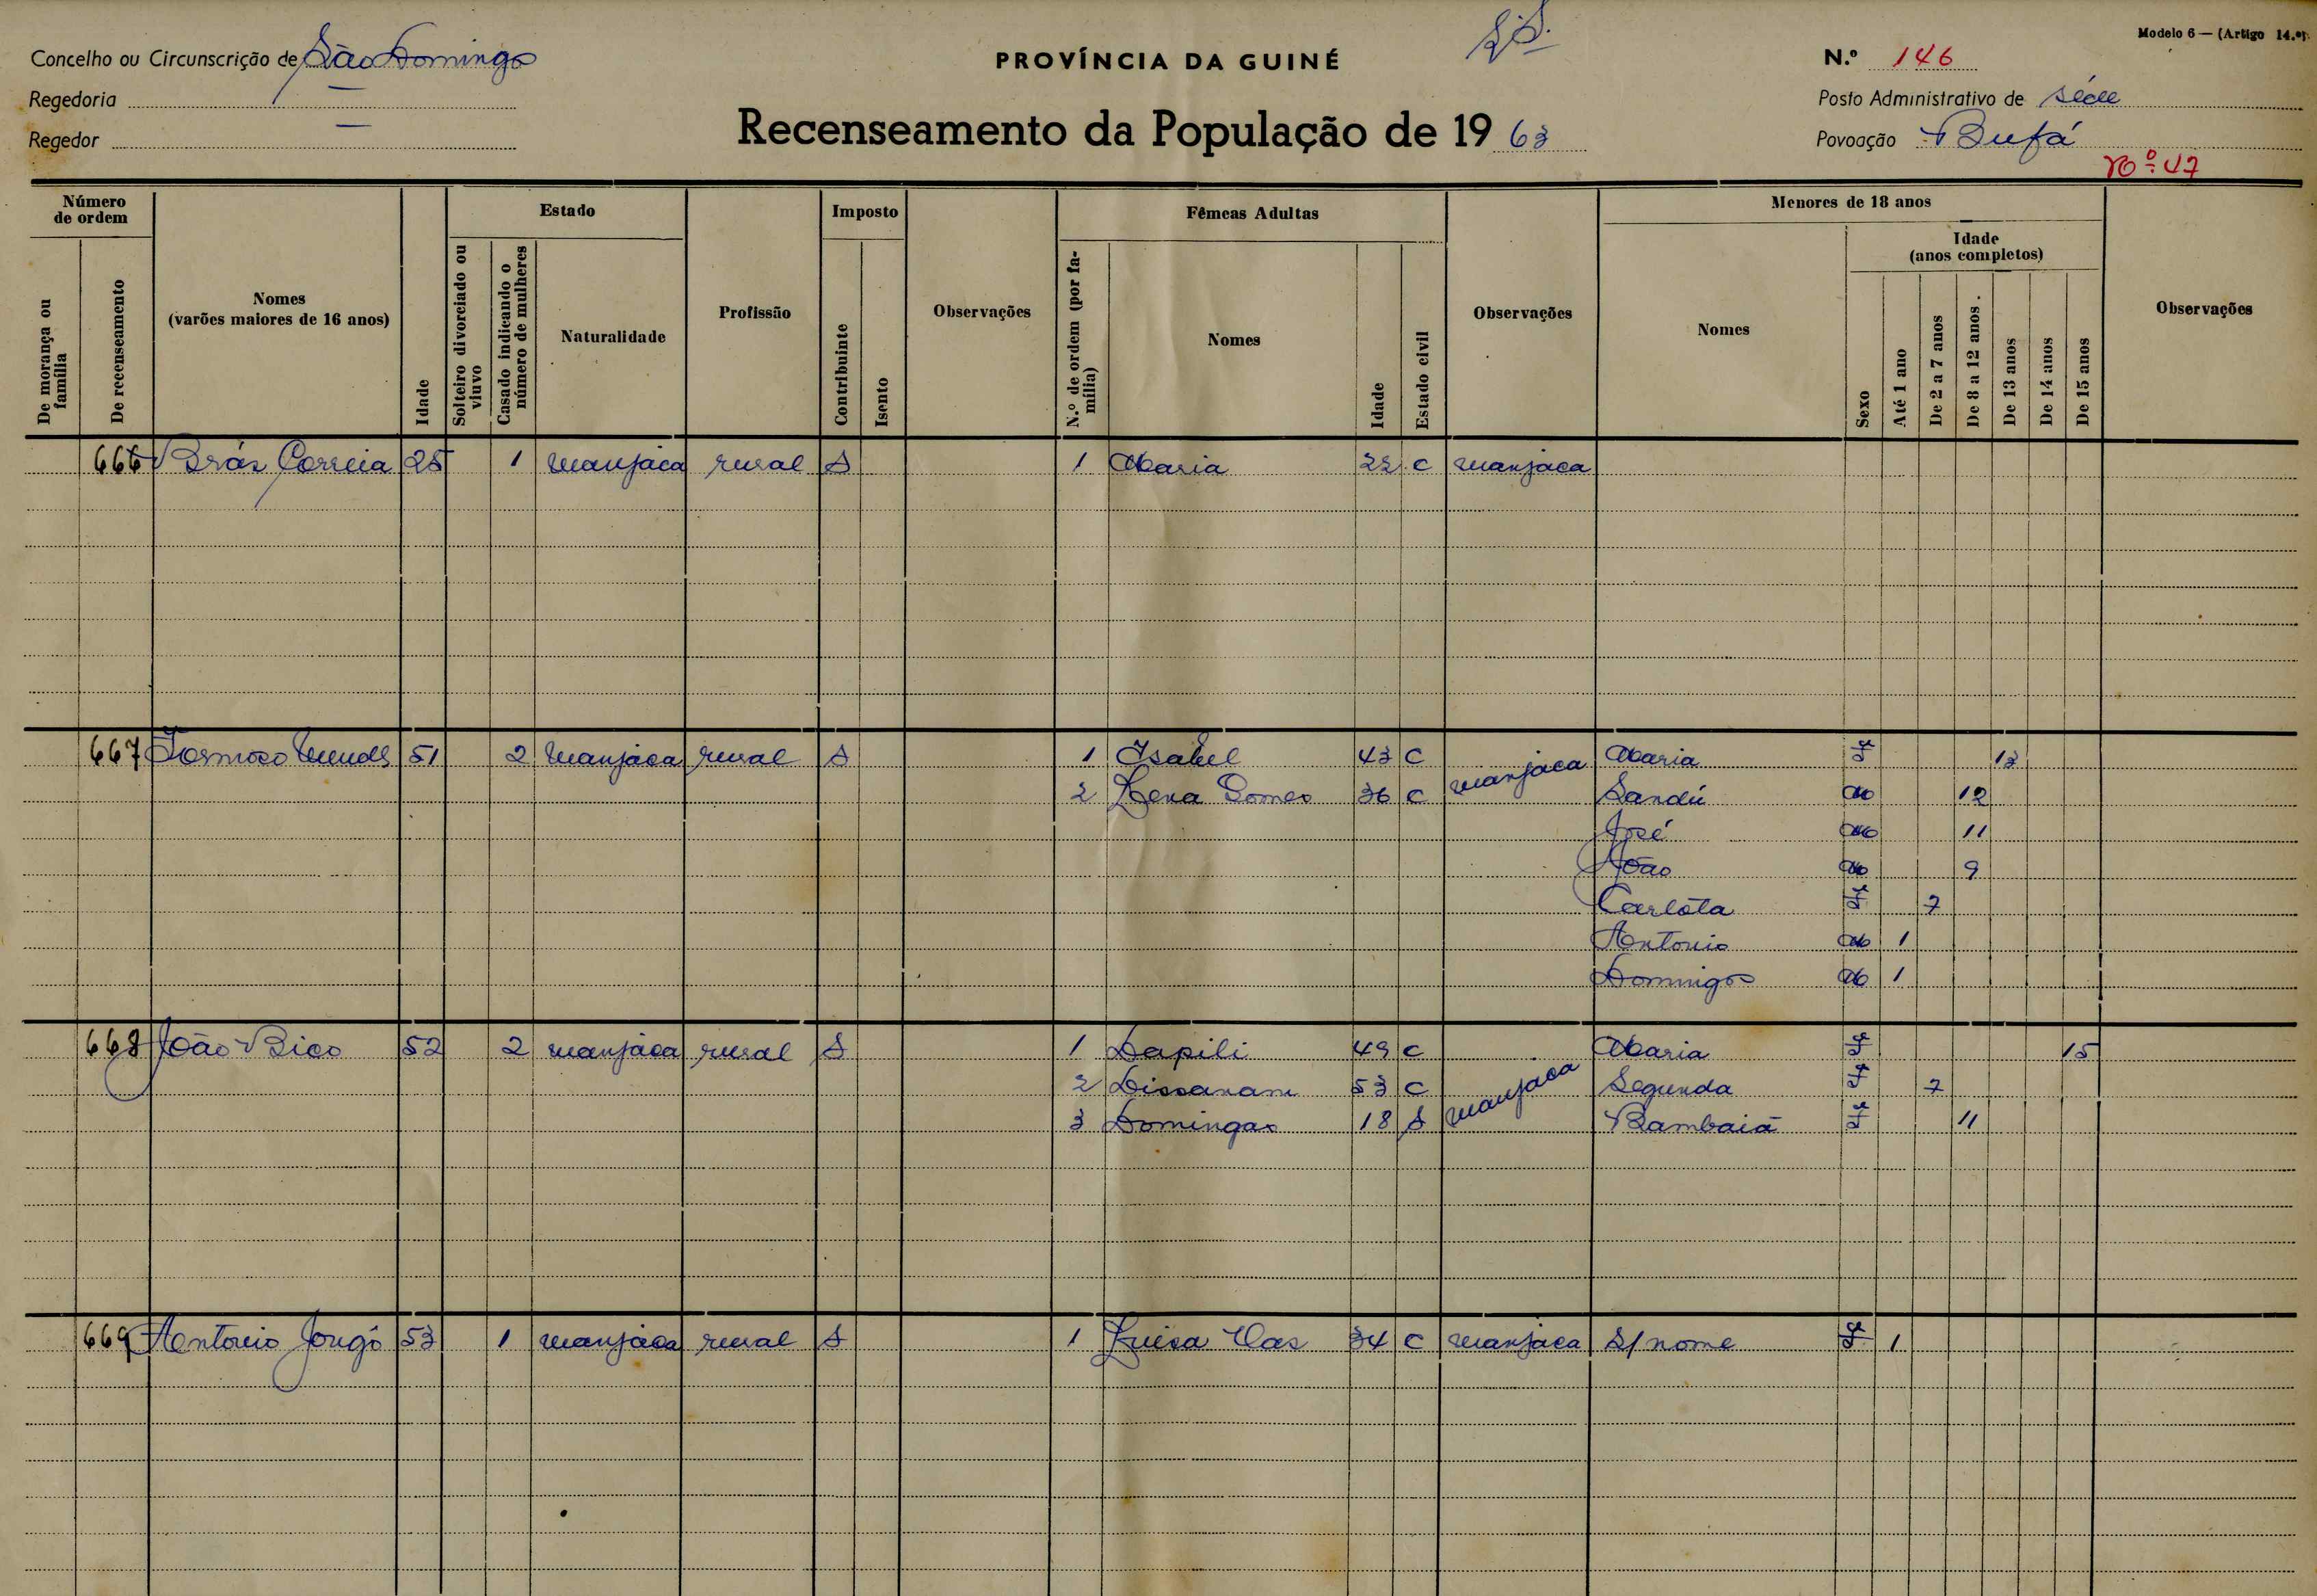 Modelo 6 — (Artigo 14.º)
Concelho ou Circunscrição de São Domingos
PROVÍNCIA DA GUINÉ
S.D.
N.º 146
Regedoria —
Posto Administrativo de séde
Regedor —
Recenseamento da População de 1963
Povoação Bufá
Nº 47
Número de ordem
De morança ou família
De recenseamento
Nomes
(varões maiores de 16 anos)
Idade
Estado
Solteiro divorciado ou viuvo
Casado indicando o número de mulheres
Naturalidade
Profissão
Imposto
Contribuinte
Isento
Observações
Fêmeas Adultas
N.º de ordem (por família)
Nomes
Idade
Estado civil
Observações
Menores de 18 anos
Nomes
Sexo
Idade
(anos completos)
Até 1 ano
De 2 a 7 anos
De 8 a 12 anos.
De 13 anos
De 14 anos
De 15 anos
Observações
666 Brás Correia 25 1 manjaca rural S 1 Maria 22 c manjaca
667 Formoso Mendes 51 2 manjaca rural S 1 Isabel 43 c manjaca Maria F 13
2 Lena Gomes 36 c Sandú M 12
José M 11
João M 9
Carlóta F 7
Antonio M 1
Domingos M 1
668 João Bico 52 2 manjaca rural S 1 Dapili 49 c manjaca Maria F 15
2 Dissanam 53 c Segunda F 7
3 Domingas 18 S Bambaiã F 11
669 Antonio Jongó 53 1 manjaca rural S 1 Luisa Vas 34 c manjaca S/ nome F 1